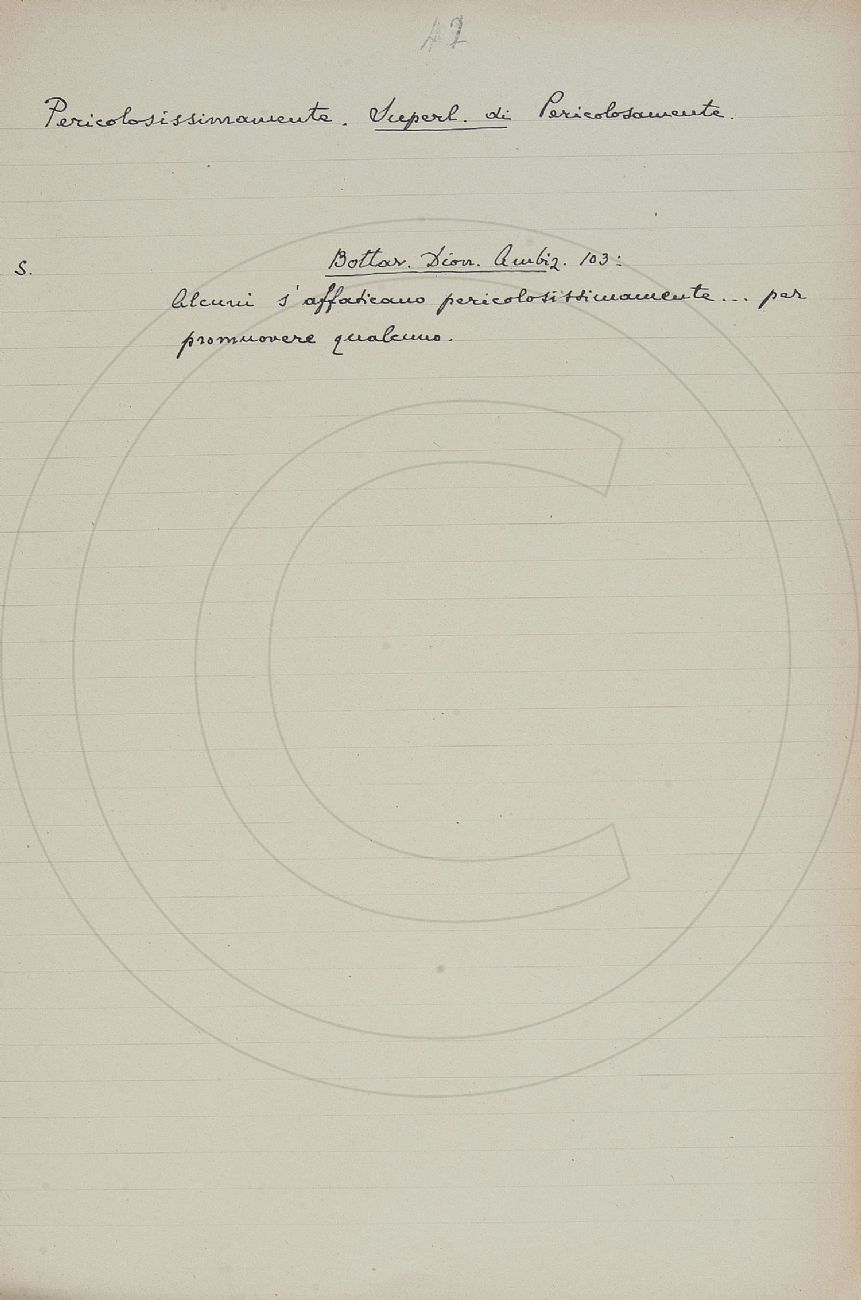 42
Pericolosissimamente. Superl. di Pericolosamente.
S.
Bottar. Dion. Ambiz. 103:
Alcuni s'affaticano pericolosissimamente... per
promuovere qualcuno.